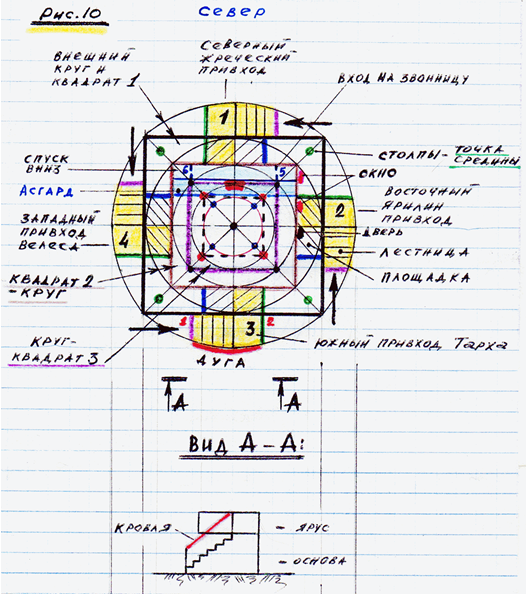 Рис.10
СЕВЕР
ВНЕШНИЙ
КРУГ И
КВАДРАТ 1
СЕВЕРНЫЙ
ЖРЕЧЕСКИЙ
ПРИВХОД
ВХОД НА ЗВОННИЦУ
1
СТОЛПЫ - ТОЧКА
СРЕДИНЫ
СПУСК
ВНИЗ
6
5
ОКНО
АСГАРД
ВОСТОЧНЫЙ
ЯРИЛИН
ПРИВХОД
2
ЗАПАДНЫЙ
ПРИВХОД
ВЕЛЕСА
4
ДВЕРЬ
ЛЕСТНИЦА
ПЛОЩАДКА
КВАДРАТ 2
-КРУГ
1
3
2
КРУГ-
КВАДРАТ 3
ЮЖНЫЙ ПРИВХОД ТАРХА
ДУГА
А
А
ВИД А-А:
КРОВЛЯ
- ЯРУС
- ОСНОВА